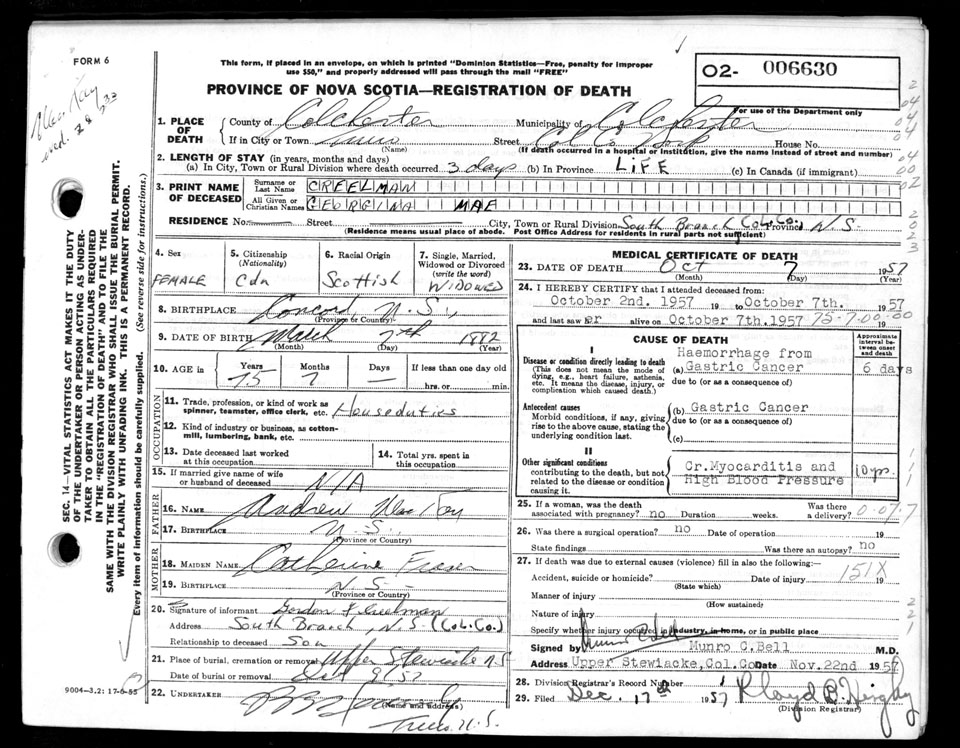 FORM 6
This form, if placed in an envelope, on which is printed "Dominion Statistics—Free, penalty for improper
use $50," and properly addressed will pass through the mail "FREE"
02- 006630
PROVINCE OF NOVA SCOTIA—REGISTRATION OF DEATH
For use of the Department only
1. PLACE OF DEATH
County of Colchester Municipality of Colchester
If in City or Town Truro Street Col Co House No.
(Name) (If death occurred in a hospital or institution, give the name instead of street and number)
2. LENGTH OF STAY (in years, months and days)
(a) In City, Town or Rural Division where death occurred 3 days (b) In Province LiFE (c) In Canada (if immigrant)
3. PRINT NAME OF DECEASED
Surname or Last Name CREELMAN
All Given or Christian Names GEORGINA MAE
RESIDENCE No. Street City, Town or Rural Division South Branch Col. Co. Province N.S.
(Residence means usual place of abode. Post Office Address for residents in rural parts not sufficient)
4. Sex
FEMALE
5. Citizenship
(Nationality)
Cdn
6. Racial Origin
Scottish
7. Single, Married,
Widowed or Divorced
(write the word)
WIDOWED
8. BIRTHPLACE N.S.,
(Province or Country)
9. DATE OF BIRTH March 7th 1882
(Month) (Day) (Year)
10. AGE in
Years Months Days If less than one day old
75 7 — hrs. or min.
OCCUPATION
11. Trade, profession, or kind of work as
spinner, teamster, office clerk, etc. Houseduties
12. Kind of industry or business, as cotton-
mill, lumbering, bank, etc.
13. Date deceased last worked
at this occupation
14. Total yrs. spent in
this occupation
15. If married give name of wife
or husband of deceased N/A
FATHER
16. NAME Andrew
17. BIRTHPLACE N.S.
(Province or Country)
MOTHER
18. MAIDEN NAME Catherine Fraser
19. BIRTHPLACE N.S.
(Province or Country)
20. Signature of informant Gordon F Creelman
Address South Branch, N.S. (Col. Co.)
Relationship to deceased Son
21. Place of burial, cremation or removal Upper Stewiacke N.S
Date of burial or removal Oct 9/57
22. UNDERTAKER
(Name and address)
Truro N.S.
9004-3.2: 17-6-55
MEDICAL CERTIFICATE OF DEATH
23. DATE OF DEATH Oct 7 1957
(Month) (Day) (Year)
24. I HEREBY CERTIFY that I attended deceased from:
October 2nd. 1957 19 to October 7th. 1957
and last saw her alive on October 7th.1957 75-7.00-00 19
CAUSE OF DEATH
Approximate interval between onset and death
I
Disease or condition directly leading to death
(This does not mean the mode of
dying, e.g., heart failure, asthenia,
etc. It means the disease, injury, or
complication which caused death.)
Haemorrhage from
(a) Gastric Cancer 6 days
due to (or as a consequence of)
Antecedent causes
Morbid conditions, if any, giving
rise to the above cause, stating the
underlying condition last.
(b) Gastric Cancer
due to (or as a consequence of)
(c)
II
Other significant conditions
contributing to the death, but not
related to the disease or condition
causing it.
Cr.Myocarditis and
High Blood Pressure 10yr.
25. If a woman, was the death
associated with pregnancy? no Duration weeks. Was there
a delivery?
26. Was there a surgical operation? no Date of operation
State findings Was there an autopsy? no
27. If death was due to external causes (violence) fill in also the following:—
Accident, suicide or homicide? Date of injury 151X 19
(State which)
Manner of injury
(How sustained)
Nature of injury
Specify whether injury occurred in industry, in home, or in public place
Signed by Munro C.Bell M.D.
Address Upper Stewiacke, Col.Co Date Nov.22nd 1957
28. Division Registrar's Record Number 1
29. Filed Dec. 17th 1957
(Division Registrar)
SEC. 14—VITAL STATISTICS ACT MAKES IT THE DUTY
OF THE UNDERTAKER OR PERSON ACTING AS UNDER-
TAKER TO OBTAIN ALL THE PARTICULARS REQUIRED
IN THE "REGISTRATION OF DEATH" AND TO FILE THE
SAME WITH THE DIVISION REGISTRAR WHO SHALL ISSUE THE BURIAL PERMIT.
WRITE PLAINLY WITH UNFADING INK. THIS IS A PERMANENT RECORD.
Every item of information should be carefully supplied. (See reverse side for instructions.)